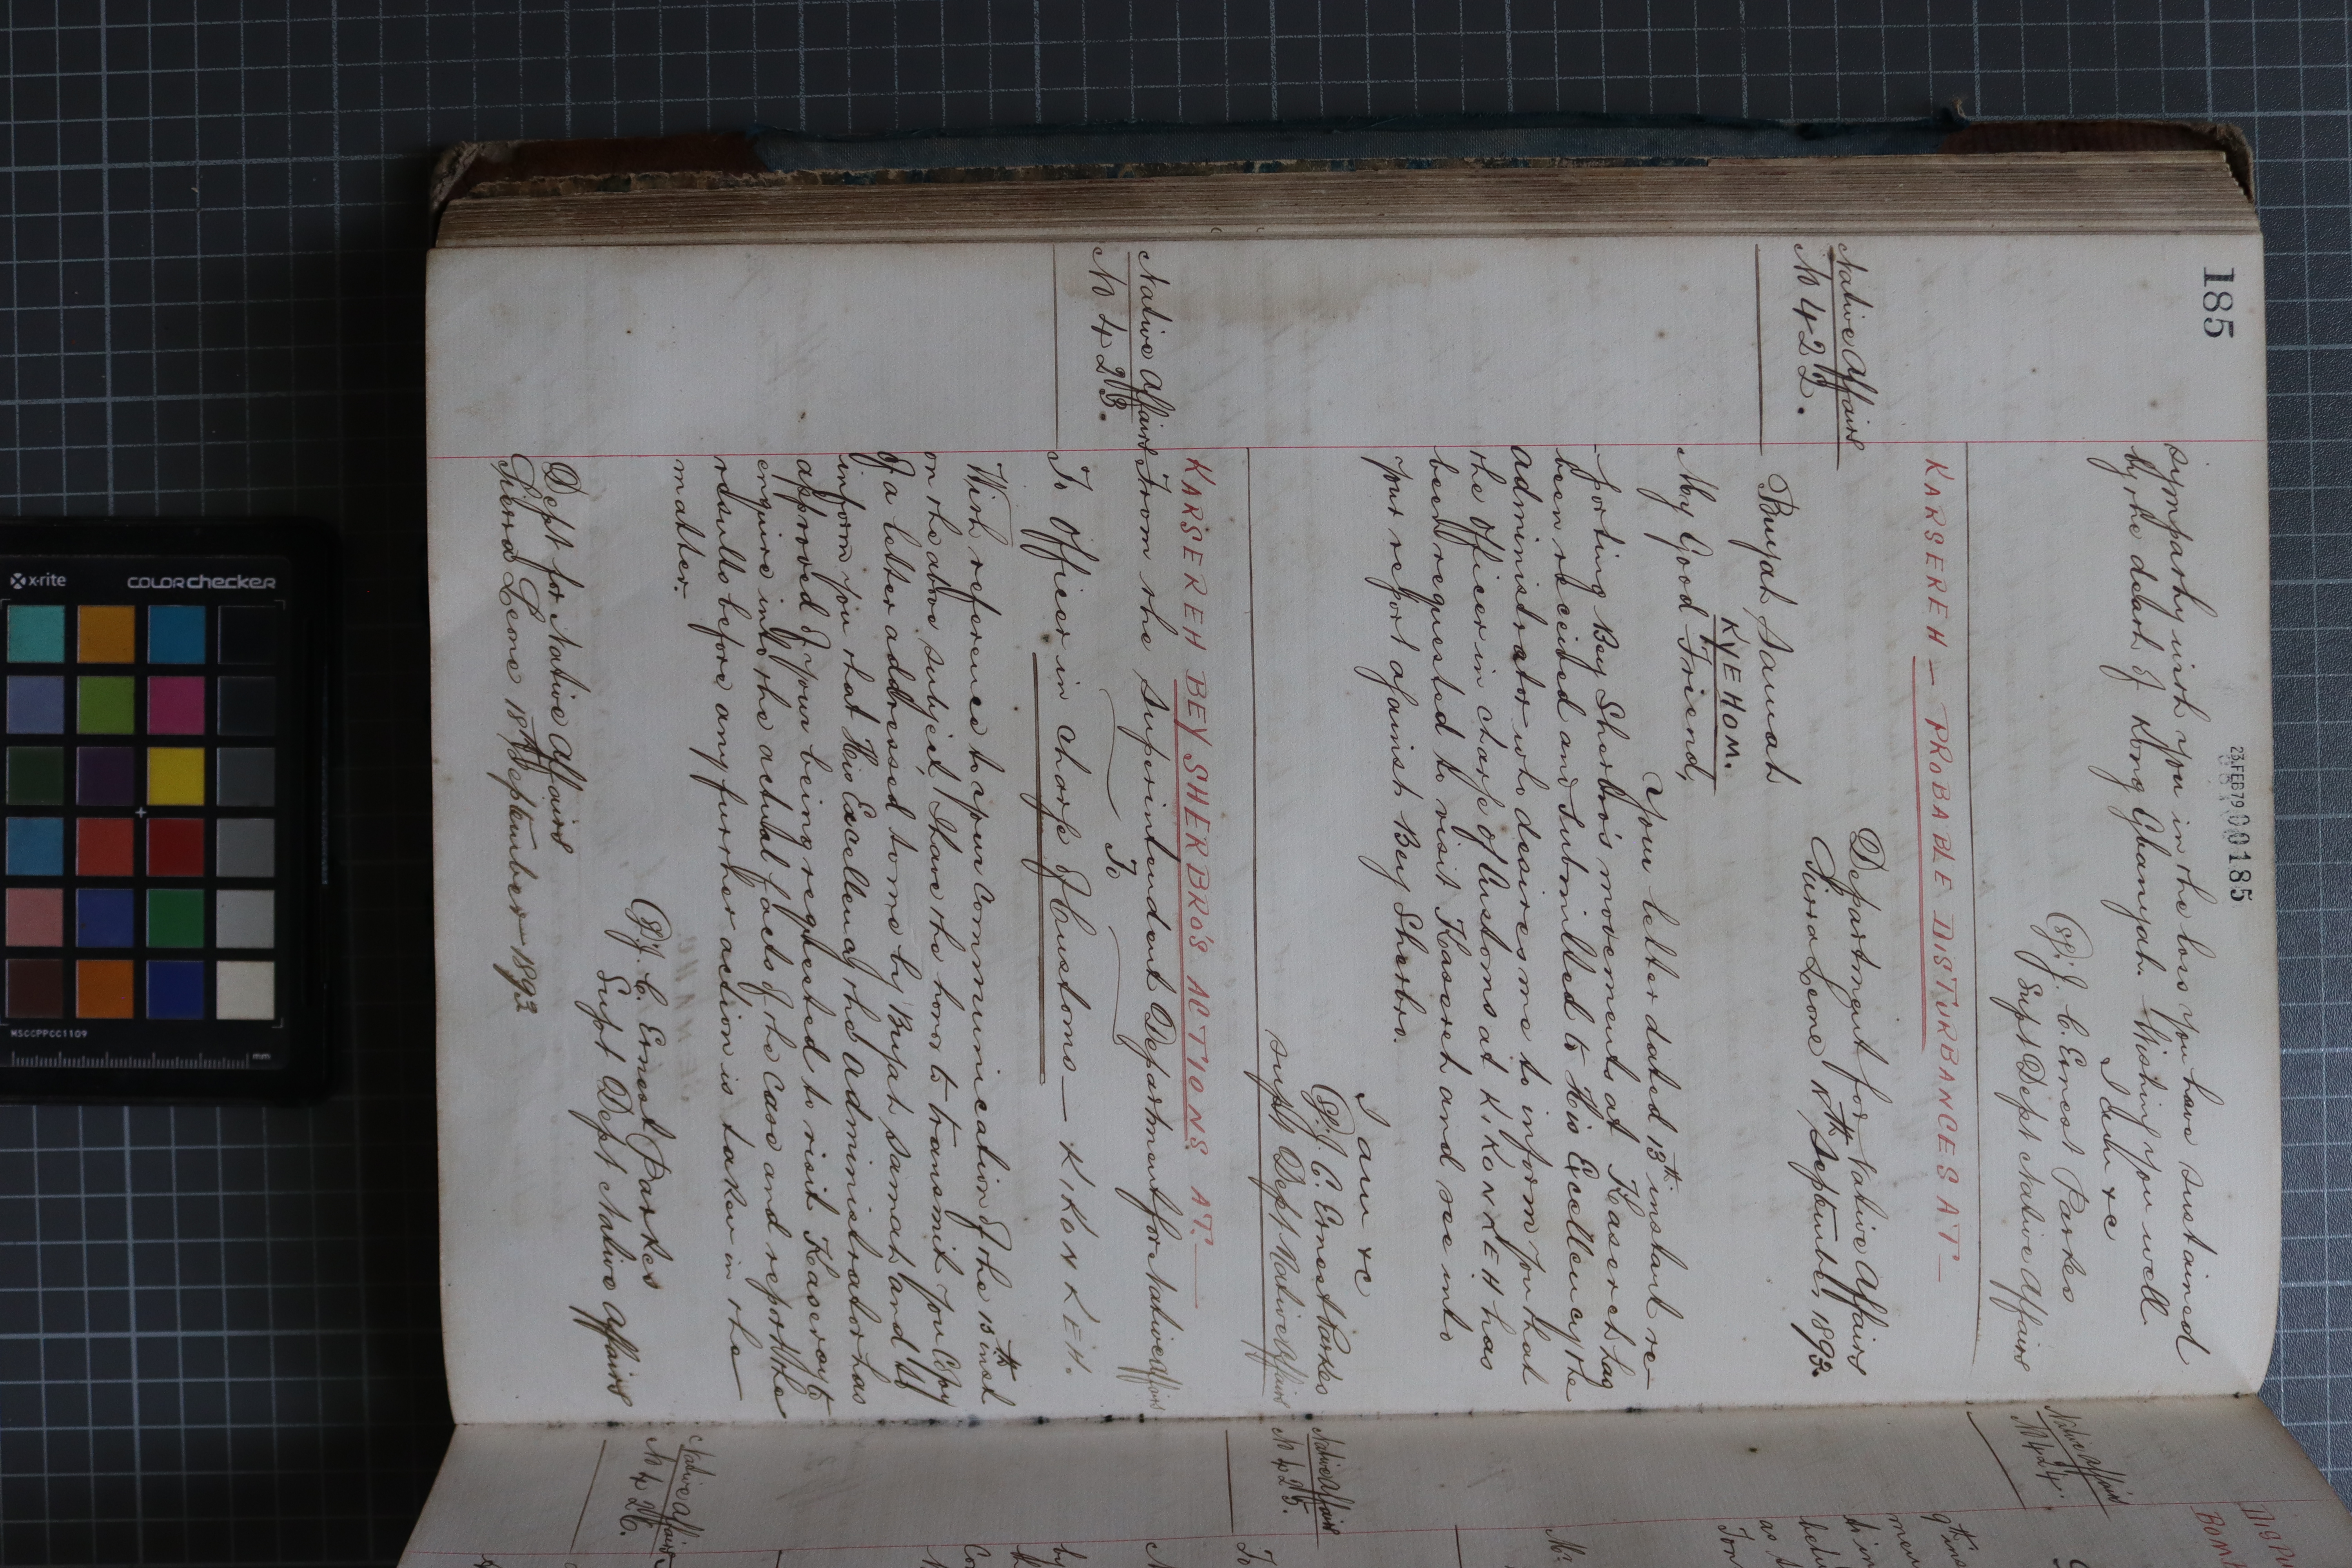 185
23 FEB 79 000185
sympathy with you in the loss you have sustained
by the death of Kong Gbanyah. Wishing you well
I am &c
(Sg) J. C. Ernest Parkes
Supt Dept Native Affairs
KARSEREH — PROBABLE DISTURBANCES AT —
Native Affairs
No 422.
Department for Native Affairs
Sierra Leone 18th September, 1893.
Buyah Samah
KYEHOM.
My Good Friend,
Your letter dated 13th instant re-
-porting Bey Sherbro's movements at Kasereh has
been received and submitted to His Excellency the
Administrator who desires me to inform you that
the Officer in charge of Customs at KIKONKEH has
been requested to visit Kasereh and see into
your report against Bey Sherbro.
I am &c
(Sg) J. C. Ernest Parkes
Supt Dept Native Affairs
KARSEREH BEY SHERBRO'S ACTIONS AT. —
Native Affairs
No 423.
From the Superintendent Department for Native Affairs
To
To Officer in charge of Customs — KIKONKEH.
With reference to your communication of the 15th inst
on the above subject, I have the honor to transmit you Copy
of a letter addressed to me by Buyah Samah and to
inform you that His Excellency the Administrator has
approved of your being requested to visit Kasereh to
enquire into the actual facts of the case and report the
results before any further action is taken in the
matter.
(Sg) J. C. Ernest Parkes
Supt Dept Native Affairs
Dept for Native Affairs
Sierra Leone 18th September 1893
Native Affairs
No 424.
Native Affairs
No 425.
Native Affairs
No 426.